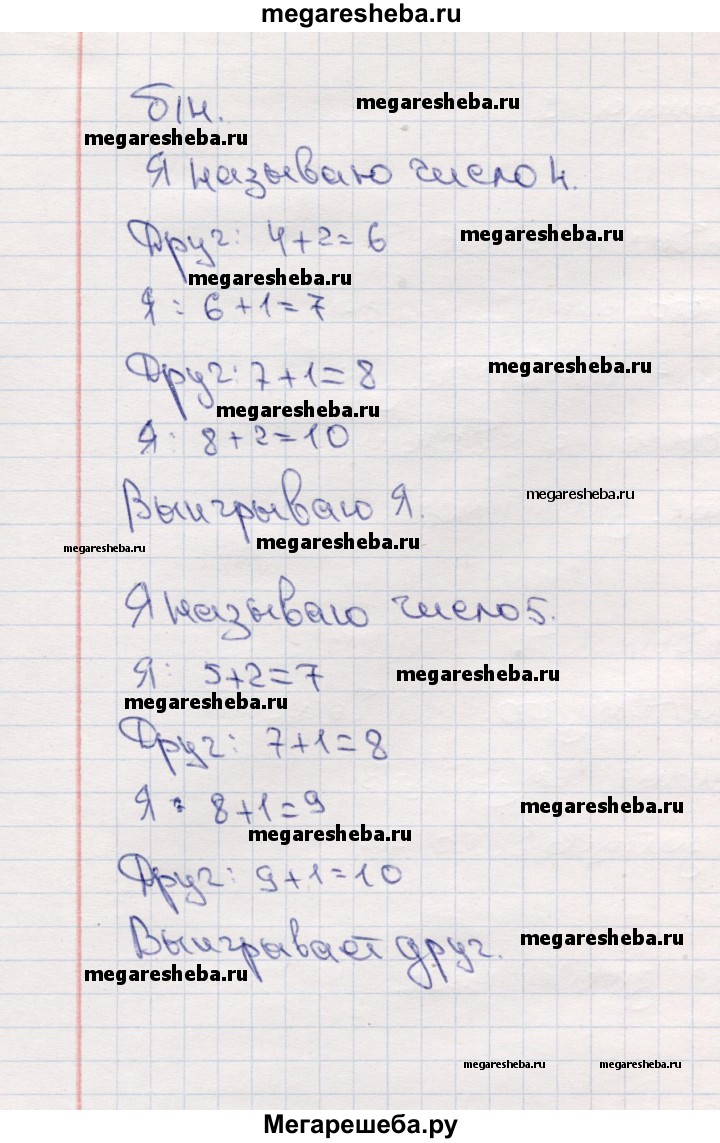 megaresheba.ru
б/н. megaresheba.ru
megaresheba.ru
Я называю число 4.
Друг: 4+2=6 megaresheba.ru
megaresheba.ru
Я: 6+1=7
Друг: 7+1=8 megaresheba.ru
megaresheba.ru
Я: 8+2=10
Выигрываю Я. megaresheba.ru
megaresheba.ru
megaresheba.ru
Я называю число 5.
Я: 5+2=7 megaresheba.ru
megaresheba.ru
Друг: 7+1=8
Я: 8+1=9 megaresheba.ru
megaresheba.ru
Друг: 9+1=10
Выигрывает друг. megaresheba.ru
megaresheba.ru
megaresheba.ru megaresheba.ru
Мегарешеба.ру